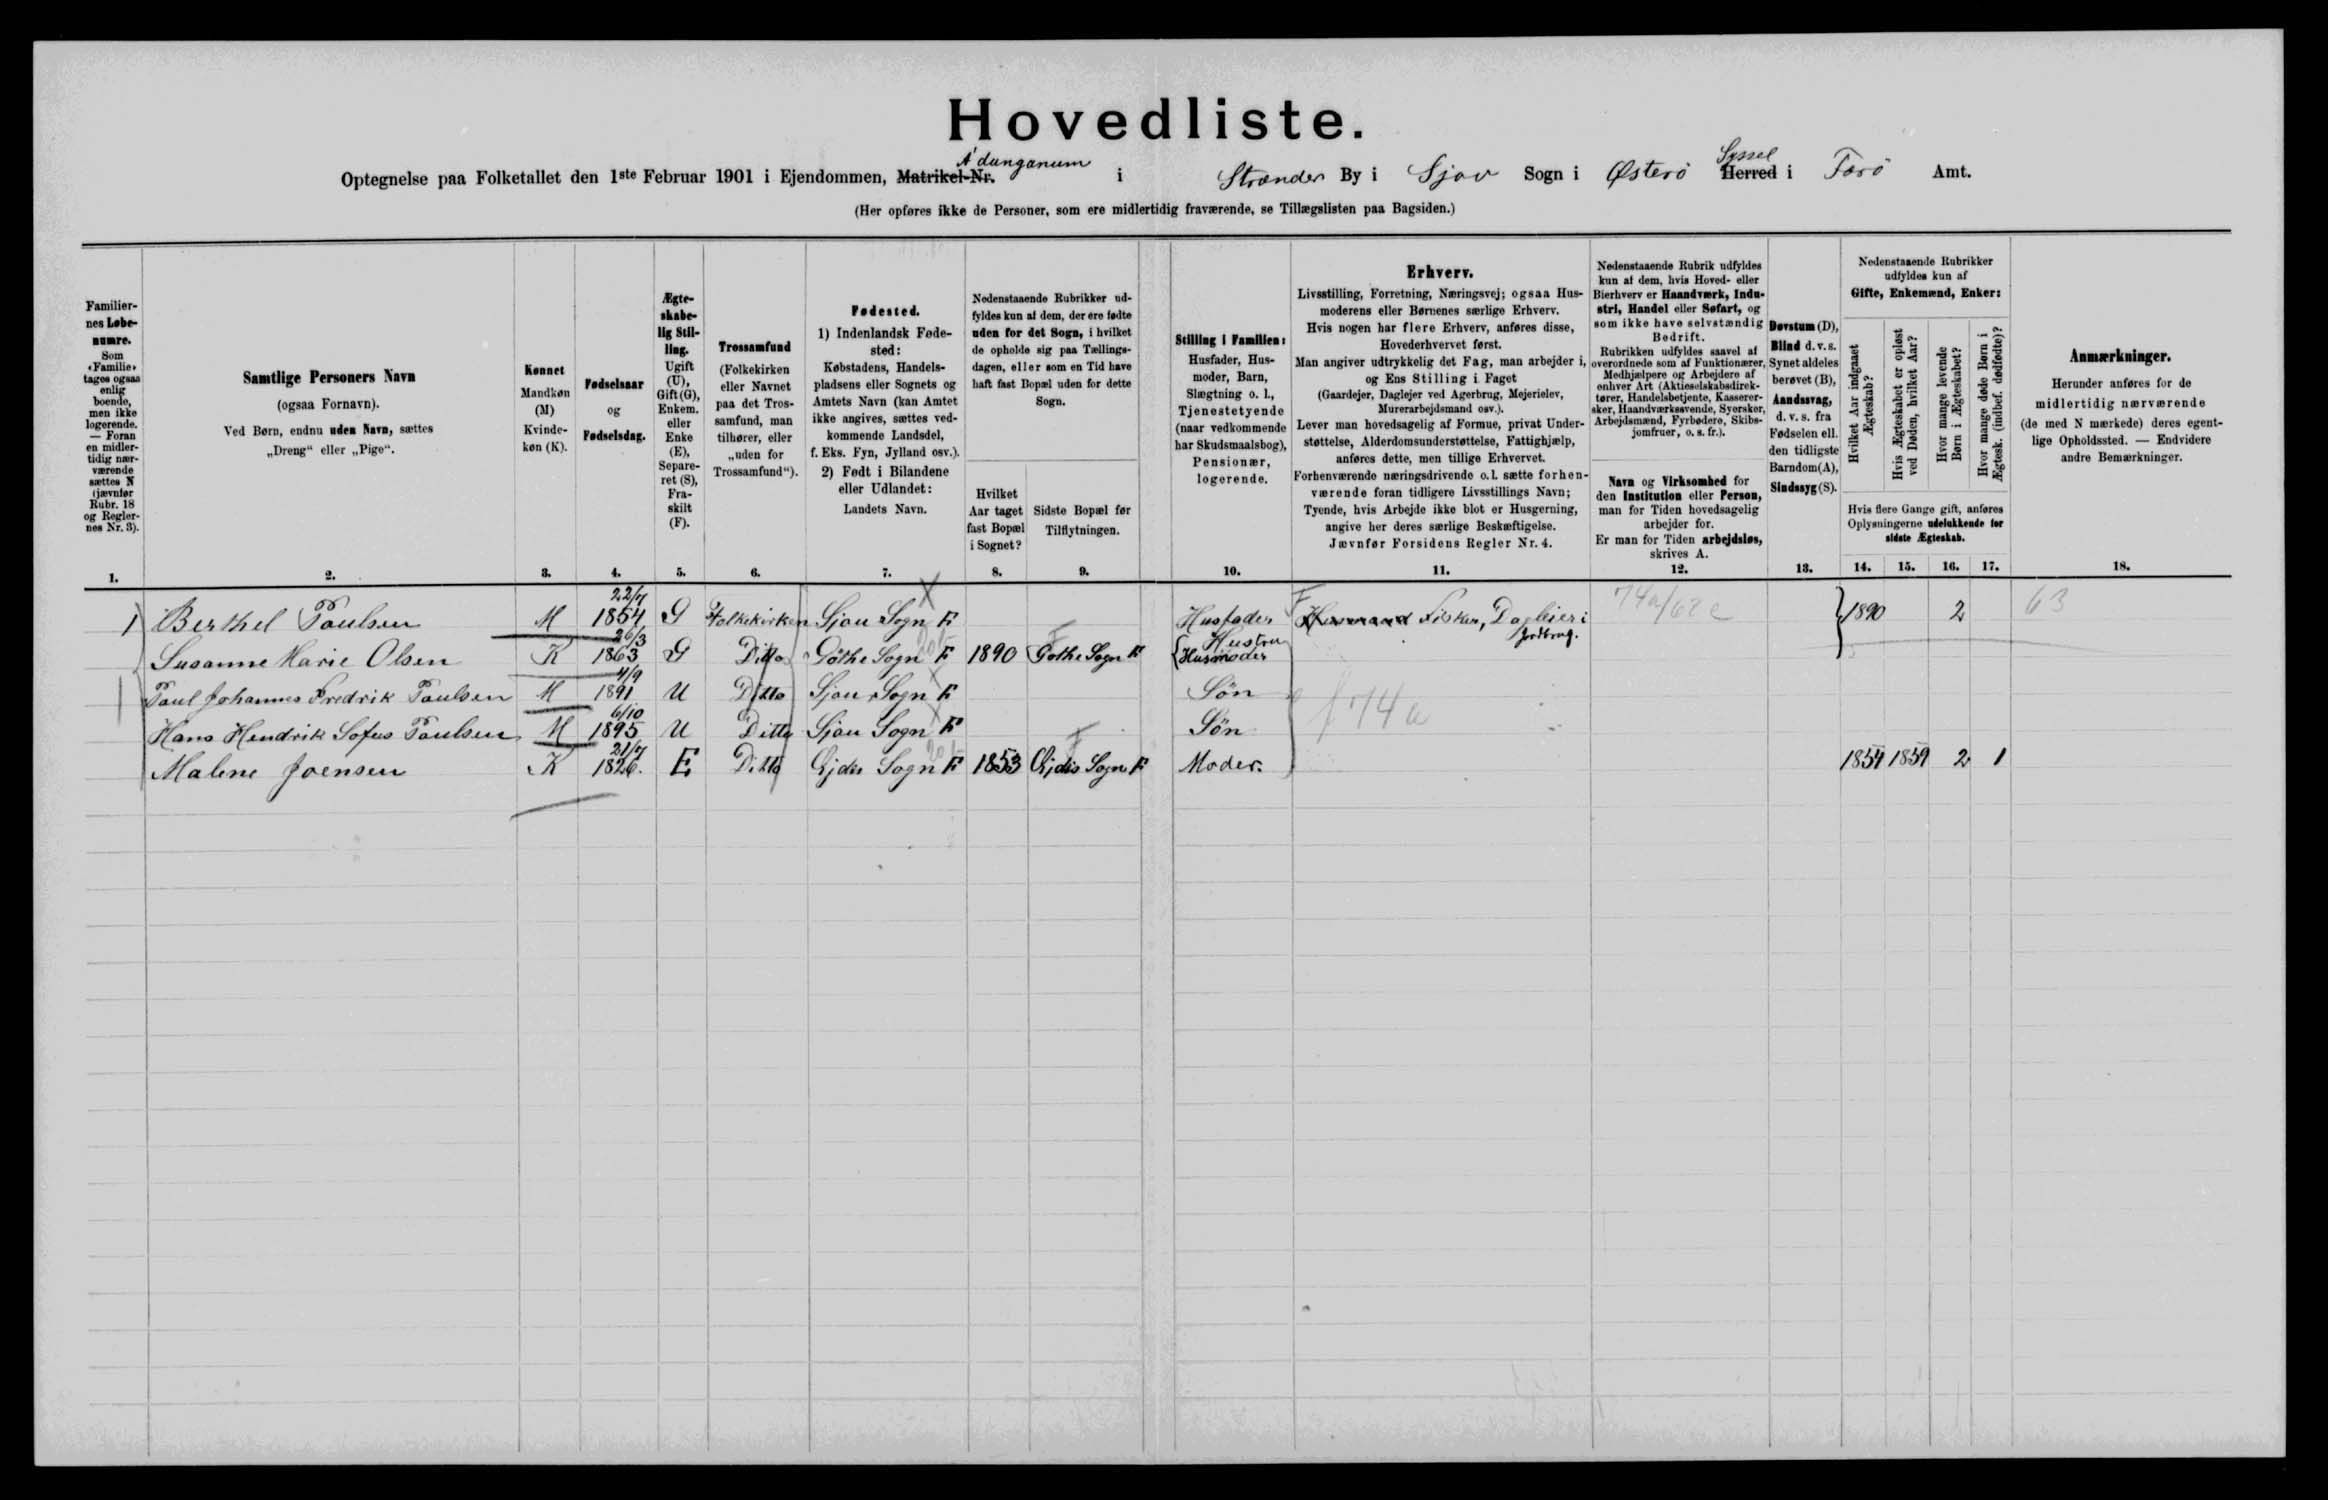 Hovedliste.
Optegnelse paa Folketallet den 1ste Februar 1901 i Ejendommen, Matrikel-Nr. Á dunganum i Strander By i Sjov Sogn i Østerö Herred Syssel i Færö Amt.
(Her opføres ikke de Personer, som ere midlertidig fraværende, se Tillægslisten paa Bagsiden.)
Familiernes Løbenumre.
Som «Familie» tages ogsaa enlig boende, men ikke logerende. — Foran en midlertidig nærværende sættes N (jævnfør Rubr. 18 og Reglernes Nr. 3).
Samtlige Personers Navn
(ogsaa Fornavn).
Ved Børn, endnu uden Navn, sættes
„Dreng“ eller „Pige“.
Kønnet
Mandkøn
(M)
Kvinde-
køn (K).
Fødselsaar
og
Fødselsdag.
Ægte-
skabe-
lig Stil-
ling.
Ugift
(U),
Gift (G),
Enkem.
eller
Enke
(E),
Separe-
ret (S),
Fra-
skilt
(F).
Trossamfund
(Folkekirken
eller Navnet
paa det Tros-
samfund, man
tilhører, eller
„uden for
Trossamfund“).
Fødested.
1) Indenlandsk Føde-
sted:
Købstadens, Handels-
pladsens eller Sognets og
Amtets Navn (kan Amtet
ikke angives, sættes ved-
kommende Landsdel,
f. Eks. Fyn, Jylland osv.).
2) Født i Bilandene
eller Udlandet:
Landets Navn.
Nedenstaaende Rubrikker ud-
fyldes kun af dem, der ere fødte
uden for det Sogn, i hvilket
de opholde sig paa Tællings-
dagen, eller som en Tid have
haft fast Bopæl uden for dette
Sogn.
Hvilket
Aar taget
fast Bopæl
i Sognet?
Sidste Bopæl før
Tilflytningen.
Stilling i Familien:
Husfader, Hus-
moder, Barn,
Slægtning o. l.,
Tjenestetyende
(naar vedkommende
har Skudsmaalsbog),
Pensionær,
logerende.
Erhverv.
Livsstilling, Forretning, Næringsvej; ogsaa Hus-
moderens eller Børnenes særlige Erhverv.
Hvis nogen har flere Erhverv, anføres disse,
Hovederhvervet først.
Man angiver udtrykkelig det Fag, man arbejder i,
og Ens Stilling i Faget
(Gaardejer, Daglejer ved Agerbrug, Mejerielev,
Murerarbejdsmand osv.).
Lever man hovedsagelig af Formue, privat Under-
støttelse, Alderdomsunderstøttelse, Fattighjælp,
anføres dette, men tillige Erhvervet.
Forhenværende næringsdrivende o. l. sætte forhen-
værende foran tidligere Livsstillings Navn;
Tyende, hvis Arbejde ikke blot er Husgerning,
angive her deres særlige Beskæftigelse.
Jævnfør Forsidens Regler Nr. 4.
Nedenstaaende Rubrik udfyldes
kun af dem, hvis Hoved- eller
Bierhverv er Haandværk, Indu-
stri, Handel eller Søfart, og
som ikke have selvstændig
Bedrift.
Rubrikken udfyldes saavel af
overordnede som af Funktionærer,
Medhjælpere og Arbejdere af
enhver Art (Aktieselskabsdirek-
tører, Handelsbetjente, Kasserer-
sker, Haandværkssvende, Syersker,
Arbejdsmænd, Fyrbødere, Skibs-
jomfruer, o. s. fr.).
Navn og Virksomhed for
den Institution eller Person,
man for Tiden hovedsagelig
arbejder for.
Er man for Tiden arbejdsløs,
skrives A.
Døvstum (D),
Blind d. v. s.
Synet aldeles
berøvet (B),
Aandssvag,
d. v. s. fra
Fødselen ell.
den tidligste
Barndom (A),
Sindssyg (S).
Nedenstaaende Rubrikker
udfyldes kun af
Gifte, Enkemænd, Enker:
Hvilket Aar indgaaet
Ægteskab?
Hvis Ægteskabet er opløst
ved Døden, hvilket Aar?
Hvor mange levende
Børn i Ægteskabet?
Hvor mange døde Børn i
Ægtesk. (indbef. dødfødte)?
Hvis flere Gange gift, anføres
Oplysningerne udelukkende for
sidste Ægteskab.
Anmærkninger.
Herunder anføres for de
midlertidig nærværende
(de med N mærkede) deres egent-
lige Opholdssted. — Endvidere
andre Bemærkninger.
1. 2. 3. 4. 5. 6. 7. 8. 9. 10. 11. 12. 13. 14. 15. 16. 17. 18.
1 Berthel Poulsen M 22/7 1854 G Folkekirken Sjov Sogn F Husfader Fisker, Dagleier i Jordbrug. 74a/62e 1890 2 63
Susanne Marie Olsen K 26/3 1863 G Ditto Göthe Sogn F 1890 Gothe Sogn F Hustru Husmoder
Poul Johannes Fredrik Poulsen M 4/9 1891 U Ditto Sjov Sogn F Sön f 74a
Hans Hendrik Sofus Poulsen M 6/10 1895 U Ditto Sjov Sogn F Sön
Malene Joensen K 21/7 1826. E Ditto Ejdis Sogn F 1853 Ejdis Sogn F Moder. 1854 1859 2 1